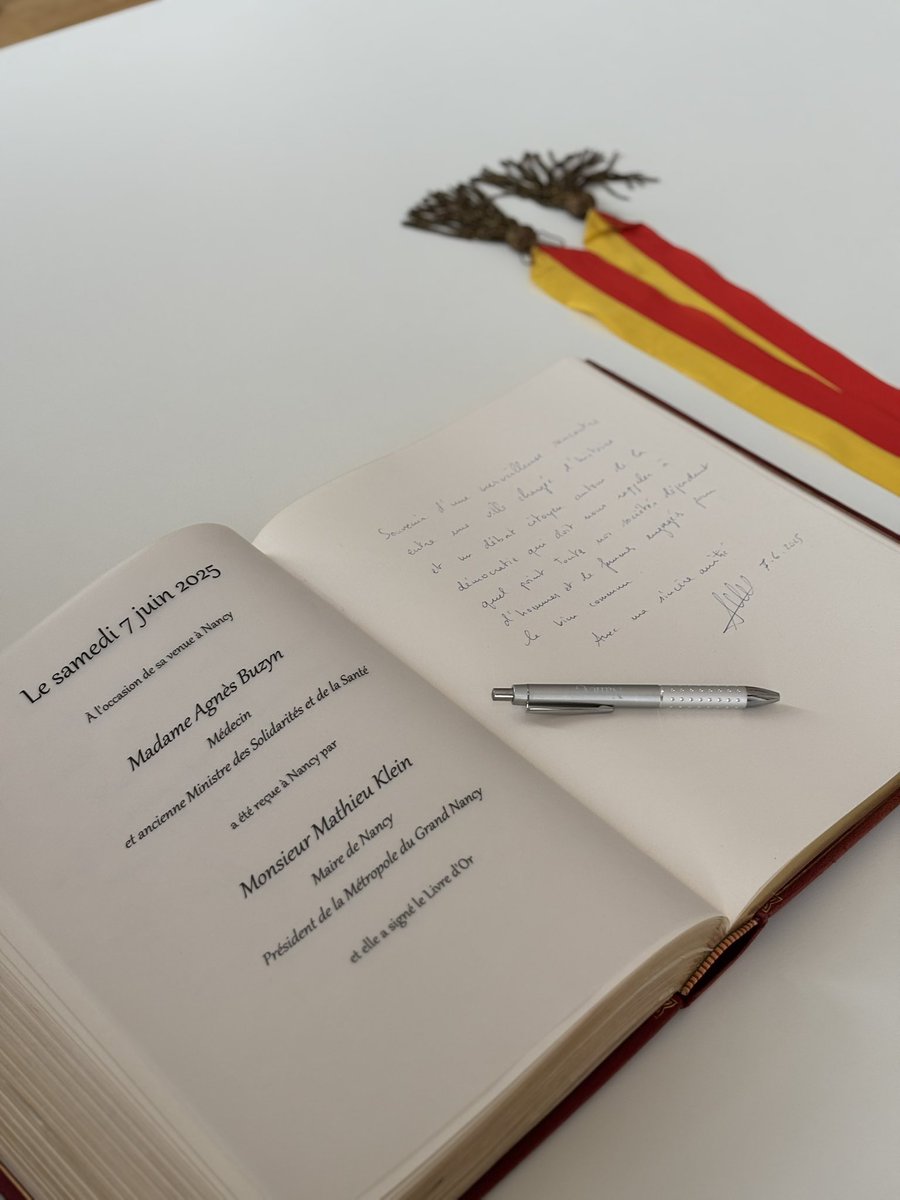 Le samedi 7 juin 2025
À l'occasion de sa venue à Nancy
Madame Agnès Buzyn
Médecin
et ancienne Ministre des Solidarités et de la Santé
a été reçue à Nancy par
Monsieur Mathieu Klein
Maire de Nancy
Président de la Métropole du Grand Nancy
et elle a signé le Livre d'Or
Souvenir d'une merveilleuse rencontre
entre une ville chargée d'histoire
et un débat citoyen autour de la
démocratie qui doit nous rappeler à
quel point toutes nos sociétés dépendent
d'hommes et de femmes engagés pour
le bien commun
Avec ma sincère amitié
7.6.2025